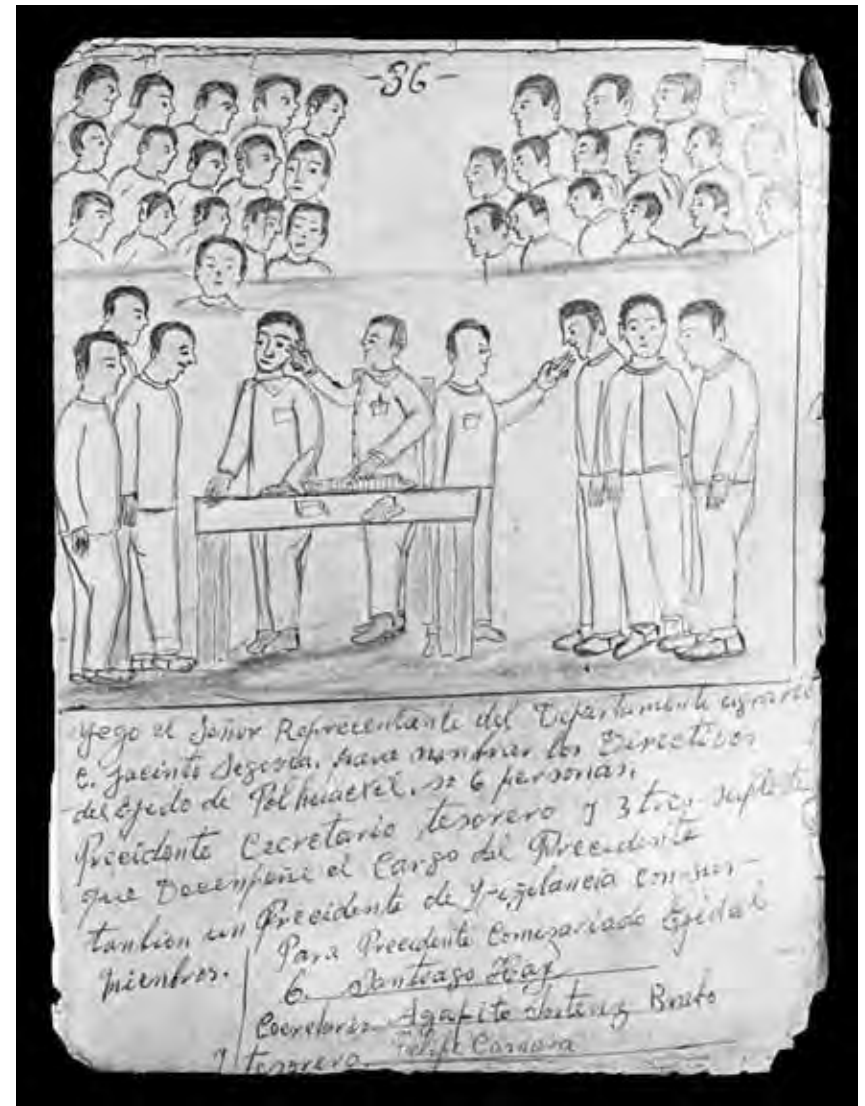 -36-
Yego el Señor Reprecentante del Departamento agrario
C. Jacinto Segovia, para nombrar los Directivos
del Ejido de Polhuacxil. so 6 personas.
Preeidente Cecretario tesorero y 3 tres suplente
que Decenpeñe el Cargo del Preecidente
tanbien un Precidente de Vigilancia con sus-
mienbros.
Para Preecidente Comisariado Ejidal
Santiago
Cecretario Agapito Brito
y tesorero. Felipe Camara